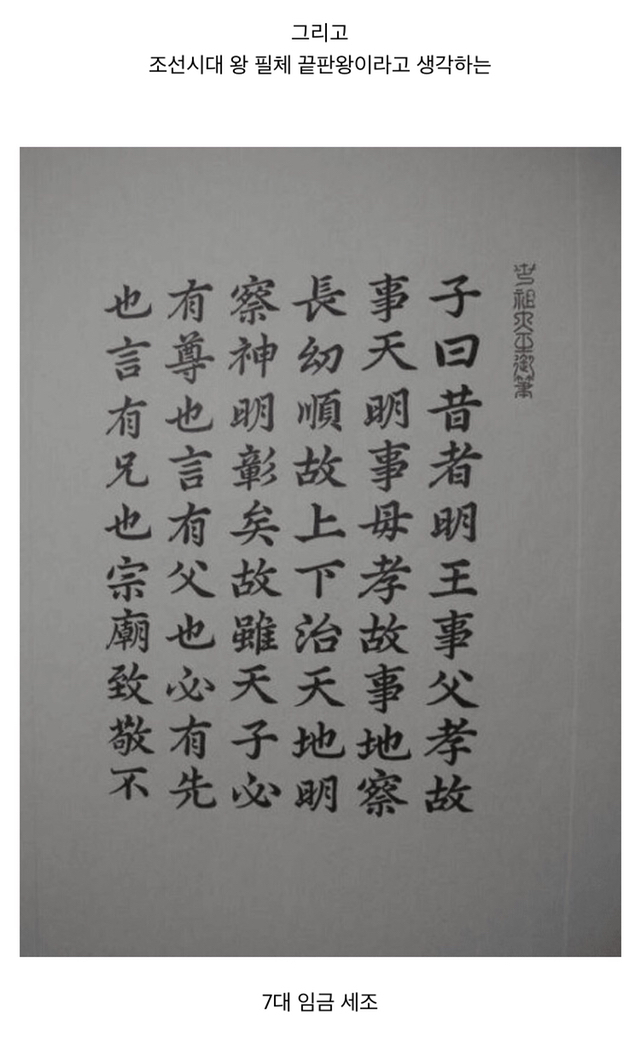 그리고
조선시대 왕 필체 끝판왕이라고 생각하는
世祖大王御筆
子曰昔者明王事父孝故
事天明事母孝故事地察
長幼順故上下治天地明
察神明彰矣故雖天子必
有尊也言有父也必有先
也言有兄也宗廟致敬不
7대 임금 세조